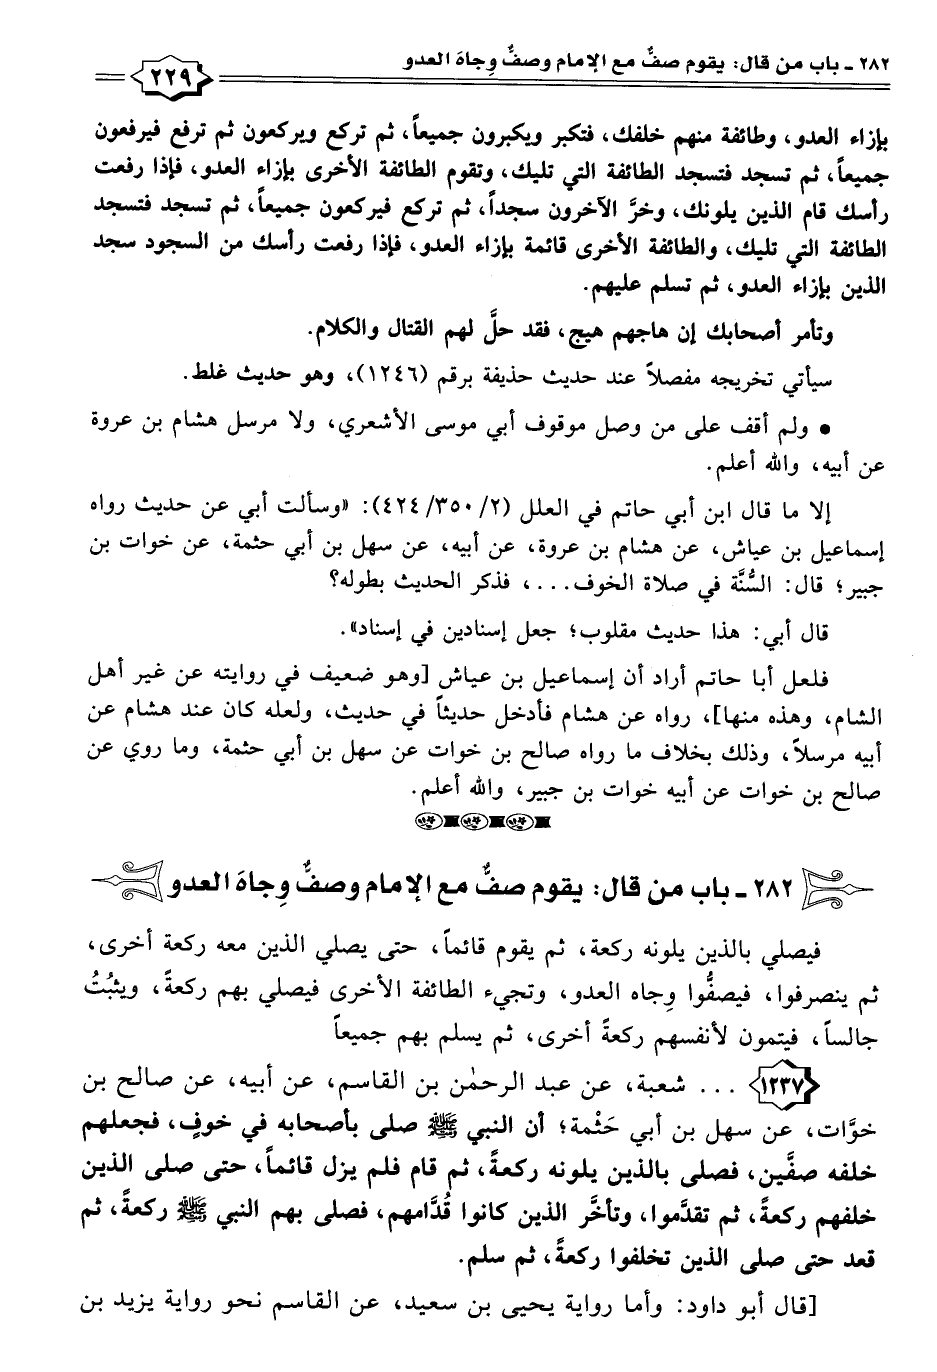 ٢٨٢ - باب من قال: يقوم صفٌّ مع الإمام وصفٌّ وِجاهَ العدو
٢٢٩
بإزاء العدو، وطائفة منهم خلفك، فتكبر ويكبرون جميعاً، ثم تركع ويركعون ثم ترفع فيرفعون
جميعاً، ثم تسجد فتسجد الطائفة التي تليك، وتقوم الطائفة الأخرى بإزاء العدو، فإذا رفعت
رأسك قام الذين يلونك، وخرَّ الآخرون سجداً، ثم تركع فيركعون جميعاً، ثم تسجد فتسجد
الطائفة التي تليك، والطائفة الأخرى قائمة بإزاء العدو، فإذا رفعت رأسك من السجود سجد
الذين بإزاء العدو، ثم تسلم عليهم.
وتأمر أصحابك إن هاجهم هيج، فقد حلَّ لهم القتال والكلام.
سيأتي تخريجه مفصلاً عند حديث حذيفة برقم (١٢٤٦)، وهو حديث غلط.
• ولم أقف على من وصل موقوف أبي موسى الأشعري، ولا مرسل هشام بن عروة
عن أبيه، والله أعلم.
إلا ما قال ابن أبي حاتم في العلل (٢/ ٣٥٠/ ٤٢٤): «وسألت أبي عن حديث رواه
إسماعيل بن عياش، عن هشام بن عروة، عن أبيه، عن سهل بن أبي حثمة، عن خوات بن
جبير؛ قال: السُّنَّة في صلاة الخوف...، فذكر الحديث بطوله؟
قال أبي: هذا حديث مقلوب؛ جعل إسنادين في إسناد».
فلعل أبا حاتم أراد أن إسماعيل بن عياش [وهو ضعيف في روايته عن غير أهل
الشام، وهذه منها]، رواه عن هشام فأدخل حديثاً في حديث، ولعله كان عند هشام عن
أبيه مرسلاً، وذلك بخلاف ما رواه صالح بن خوات عن سهل بن أبي حثمة، وما روي عن
صالح بن خوات عن أبيه خوات بن جبير، والله أعلم.
٢٨٢ - باب من قال: يقوم صفٌّ مع الإمام وصفٌّ وِجاهَ العدو
فيصلي بالذين يلونه ركعة، ثم يقوم قائماً، حتى يصلي الذين معه ركعة أخرى،
ثم ينصرفوا، فيصفُّوا وِجاه العدو، وتجيء الطائفة الأخرى فيصلي بهم ركعةً، ويثبُتُ
جالساً، فيتمون لأنفسهم ركعةً أخرى، ثم يسلم بهم جميعاً
١٢٣٧ ... شعبة، عن عبد الرحمٰن بن القاسم، عن أبيه، عن صالح بن
خوَّات، عن سهل بن أبي حَثْمة؛ أن النبي ﷺ صلى بأصحابه في خوفٍ، فجعلهم
خلفه صفَّين، فصلى بالذين يلونه ركعةً، ثم قام فلم يزل قائماً، حتى صلى الذين
خلفهم ركعةً، ثم تقدَّموا، وتأخَّر الذين كانوا قُدَّامهم، فصلى بهم النبي ﷺ ركعةً، ثم
قعد حتى صلى الذين تخلفوا ركعةً، ثم سلم.
[قال أبو داود: وأما رواية يحيى بن سعيد، عن القاسم نحو رواية يزيد بن